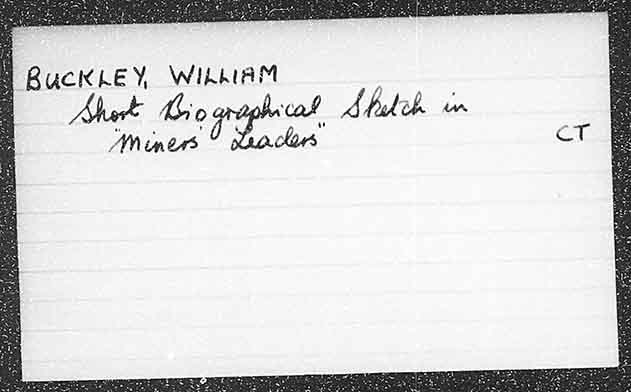 BUCKLEY, WILLIAM
Short Biographical Sketch in
"Miners' Leaders"
CT